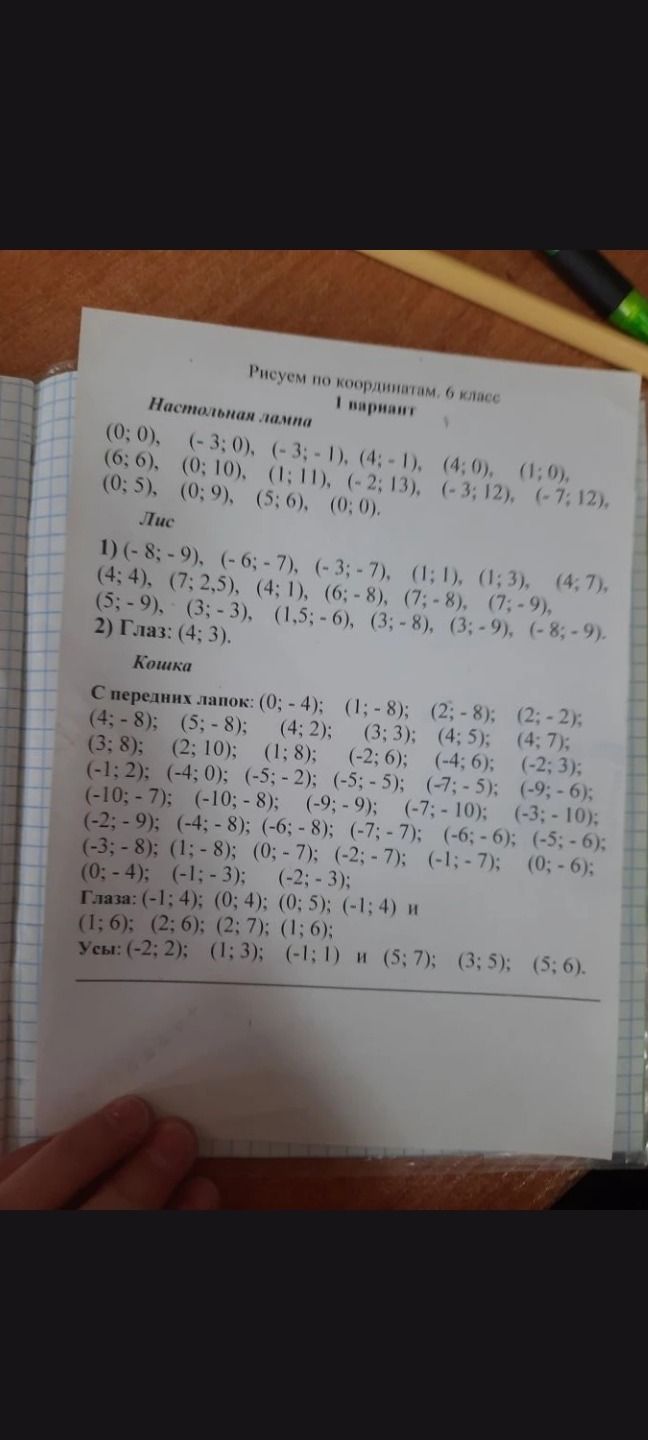 Рисуем по координатам. 6 класс
1 вариант
Настольная лампа
(0; 0), (- 3; 0), (- 3; - 1), (4; - 1), (4; 0), (1; 0),
(6; 6), (0; 10), (1; 11), (- 2; 13), (- 3; 12), (- 7; 12),
(0; 5), (0; 9), (5; 6), (0; 0).
Лис
1) (- 8; - 9), (- 6; - 7), (- 3; - 7), (1; 1), (1; 3), (4; 7),
(4; 4), (7; 2,5), (4; 1), (6; - 8), (7; - 8), (7; - 9),
(5; - 9), (3; - 3), (1,5; - 6), (3; - 8), (3; - 9), (- 8; - 9).
2) Глаз: (4; 3).
Кошка
С передних лапок: (0; - 4); (1; - 8); (2; - 8); (2; - 2);
(4; - 8); (5; - 8); (4; 2); (3; 3); (4; 5); (4; 7);
(3; 8); (2; 10); (1; 8); (-2; 6); (-4; 6); (-2; 3);
(-1; 2); (-4; 0); (-5; - 2); (-5; - 5); (-7; - 5); (-9; - 6);
(-10; - 7); (-10; - 8); (-9; - 9); (-7; - 10); (-3; - 10);
(-2; - 9); (-4; - 8); (-6; - 8); (-7; - 7); (-6; - 6); (-5; - 6);
(-3; - 8); (1; - 8); (0; - 7); (-2; - 7); (-1; - 7); (0; - 6);
(0; - 4); (-1; - 3); (-2; - 3);
Глаза: (-1; 4); (0; 4); (0; 5); (-1; 4) и
(1; 6); (2; 6); (2; 7); (1; 6);
Усы: (-2; 2); (1; 3); (-1; 1) и (5; 7); (3; 5); (5; 6).